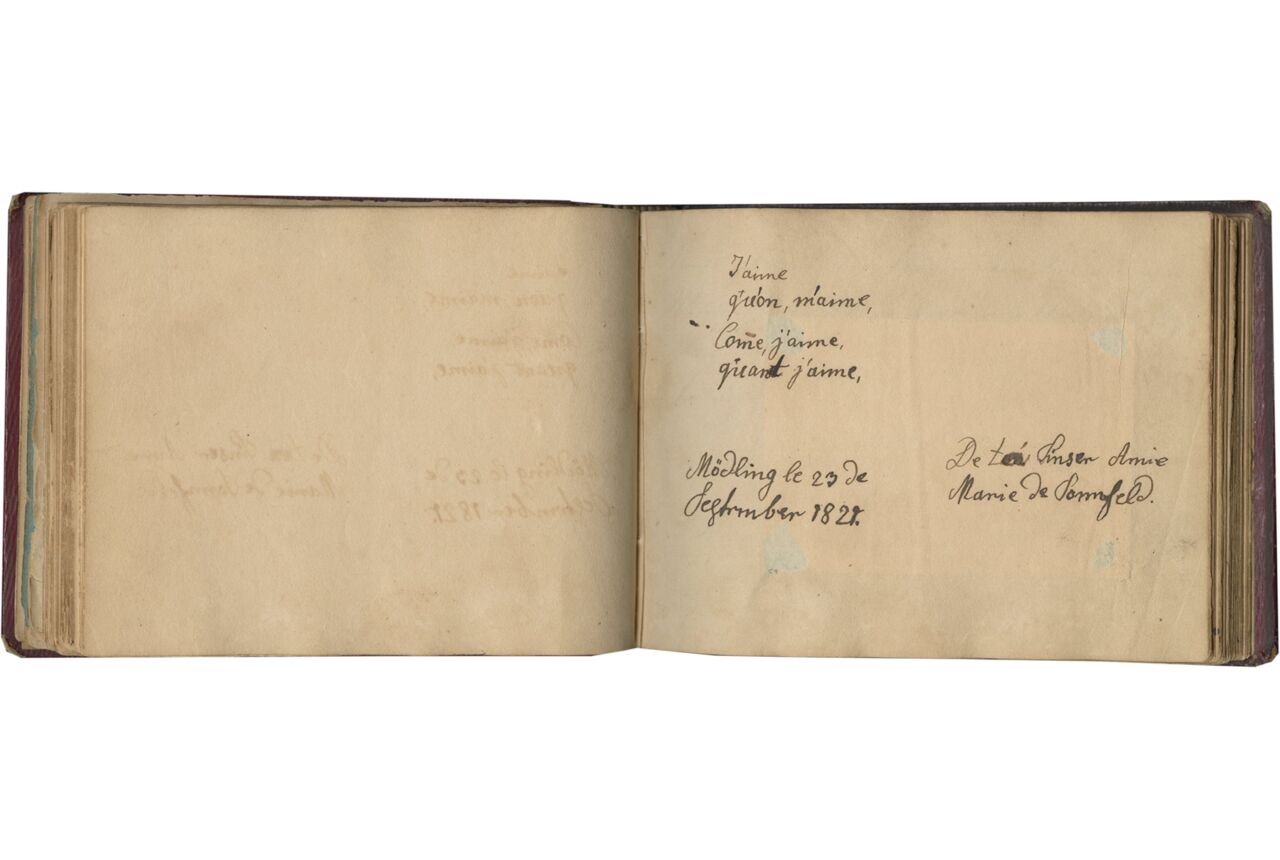 J'aime
qu'on, m'aime,
Com̄e, j'aime,
quant j'aime,
Mödling le 23 de
September 1821.
De Amie
Marie de